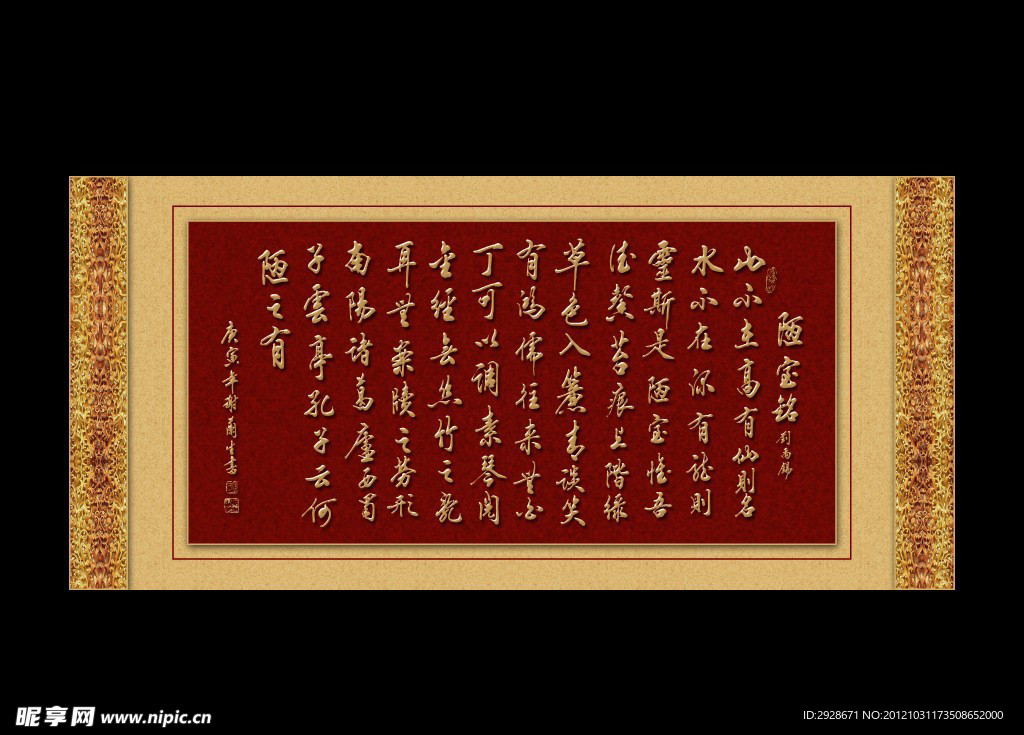 陋室銘 劉禹錫
山不在高有仙則名
水不在深有龍則
靈斯是陋室惟吾
德馨苔痕上階緑
草色入簾青談笑
有鴻儒往来無白
丁可以調素琴閲
金經無絲竹之亂
耳無案牘之勞形
南陽諸葛廬西蜀
子雲亭孔子云何
陋之有
庚寅年謝爾生書
昵享网 www.nipic.cn
ID:2928671 NO:20121031173508652000